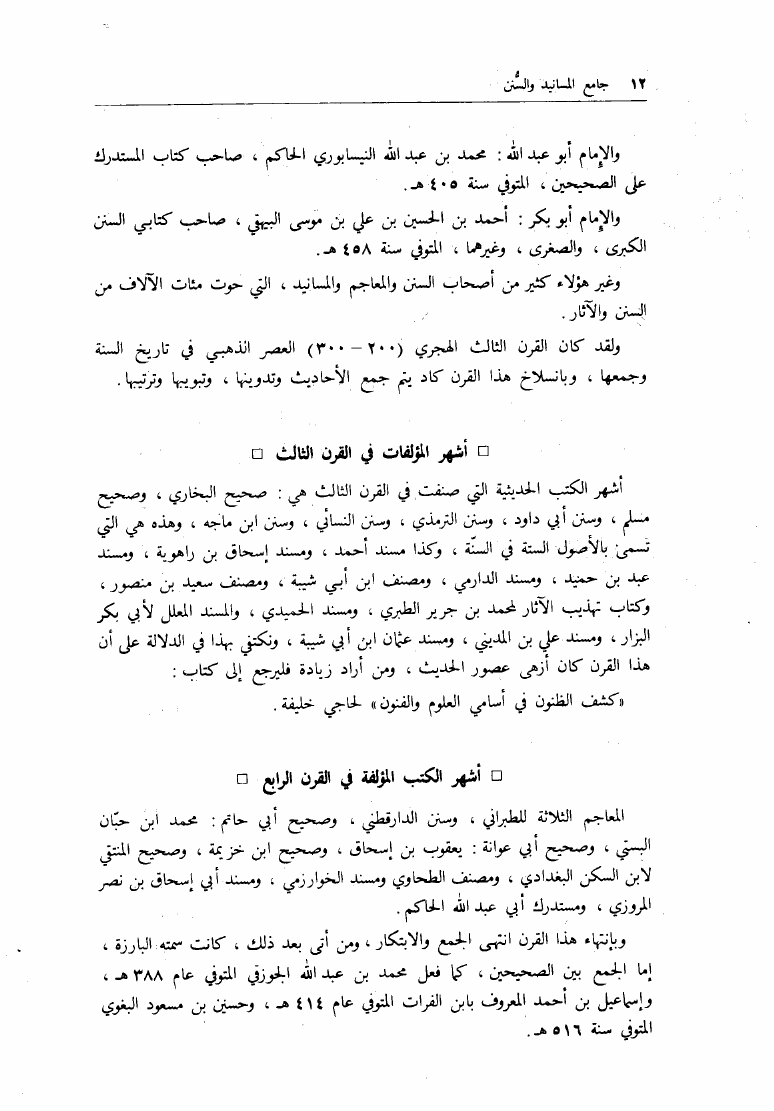 ١٢ جامع المسانيد والسُّنن
والإمام أبو عبد الله : محمد بن عبد الله النيسابوري الحاكم ، صاحب كتاب المستدرك
على الصحيحين ، المتوفي سنة ٤٠٥ هـ .
والإمام أبو بكر : أحمد بن الحسين بن علي بن موسى البيهقي ، صاحب كتابي السنن
الكبرى ، والصغرى ، وغيرهما ، المتوفي سنة ٤٥٨ هـ .
وغير هؤلاء كثير من أصحاب السنن والمعاجم والمسانيد ، التي حوت مئات الآلاف من
السنن والآثار .
ولقد كان القرن الثالث الهجري (٢٠٠ – ٣٠٠) العصر الذهبي في تاريخ السنة
وجمعها ، وبانسلاخ هذا القرن كاد يتم جمع الأحاديث وتدوينها ، وتبويبها وترتيبها .
□ أشهر المؤلفات في القرن الثالث □
أشهر الكتب الحديثية التي صنفت في القرن الثالث هي : صحيح البخاري ، وصحيح
مسلم ، وسنن أبي داود ، وسنن الترمذي ، وسنن النسائي ، وسنن ابن ماجه ، وهذه هي التي
تسمى بالأصول الستة في السنّة ، وكذا مسند أحمد ، ومسند إسحاق بن راهوية ، ومسند
عبد بن حميد ، ومسند الدارمي ، ومصنف ابن أبي شيبة ، ومصنف سعيد بن منصور ،
وكتاب تهذيب الآثار لمحمد بن جرير الطبري ، ومسند الحميدي ، والمسند المعلل لأبي بكر
البزار ، ومسند علي بن المديني ، ومسند عثمان ابن أبي شيبة ، ونكتفي بهذا في الدلالة على أن
هذا القرن كان أزهى عصور الحديث ، ومن أراد زيادة فليرجع إلى كتاب :
«كشف الظنون في أسامي العلوم والفنون» لحاجي خليفة .
□ أشهر الكتب المؤلفة في القرن الرابع □
المعاجم الثلاثة للطبراني ، وسنن الدارقطني ، وصحيح أبي حاتم : محمد ابن حبّان
البستي ، وصحيح أبي عوانة : يعقوب بن إسحاق ، وصحيح ابن خزيمة ، وصحيح المنتقي
لابن السكن البغدادي ، ومصنف الطحاوي ومسند الخوارزمي ، ومسند أبي إسحاق بن نصر
المروزي ، ومستدرك أبي عبد الله الحاكم .
وبإنتهاء هذا القرن انتهى الجمع والابتكار ، ومن أتى بعد ذلك ، كانت سمته البارزة ،
إما الجمع بين الصحيحين ، كما فعل محمد بن عبد الله الجوزقي المتوفي عام ٣٨٨ هـ ،
وإسماعيل بن أحمد المعروف بابن الفرات المتوفي عام ٤١٤ هـ ، وحسين بن مسعود البغوي
المتوفي سنة ٥١٦ هـ .